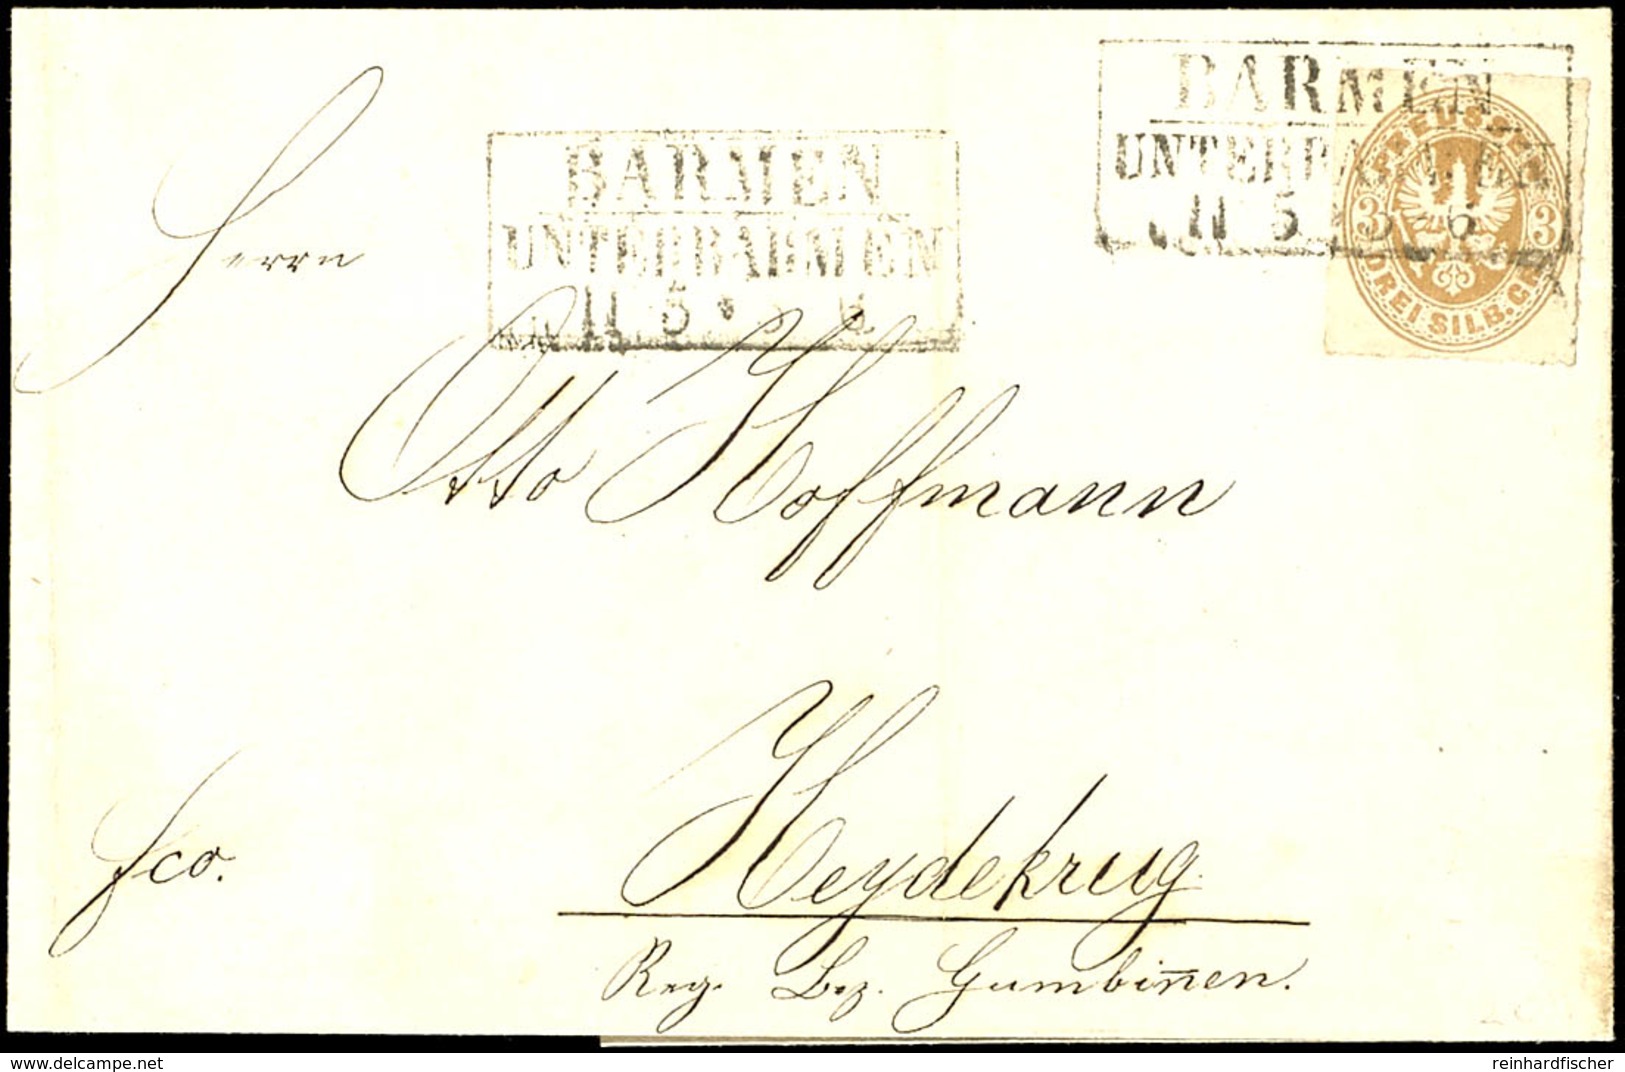 BARMEN
UNTERBARMEN
11 5 * 5-6
BARMEN
UNTERBARMEN
11 5 * 5-6
PREUSSEN
3 3
DREI SILB. GR.
Herrn
Otto Hoffmann
fco.
Heydekrug
Reg. Bez. Gumbin̅en.
www.delcampe.net
reinhardfischer